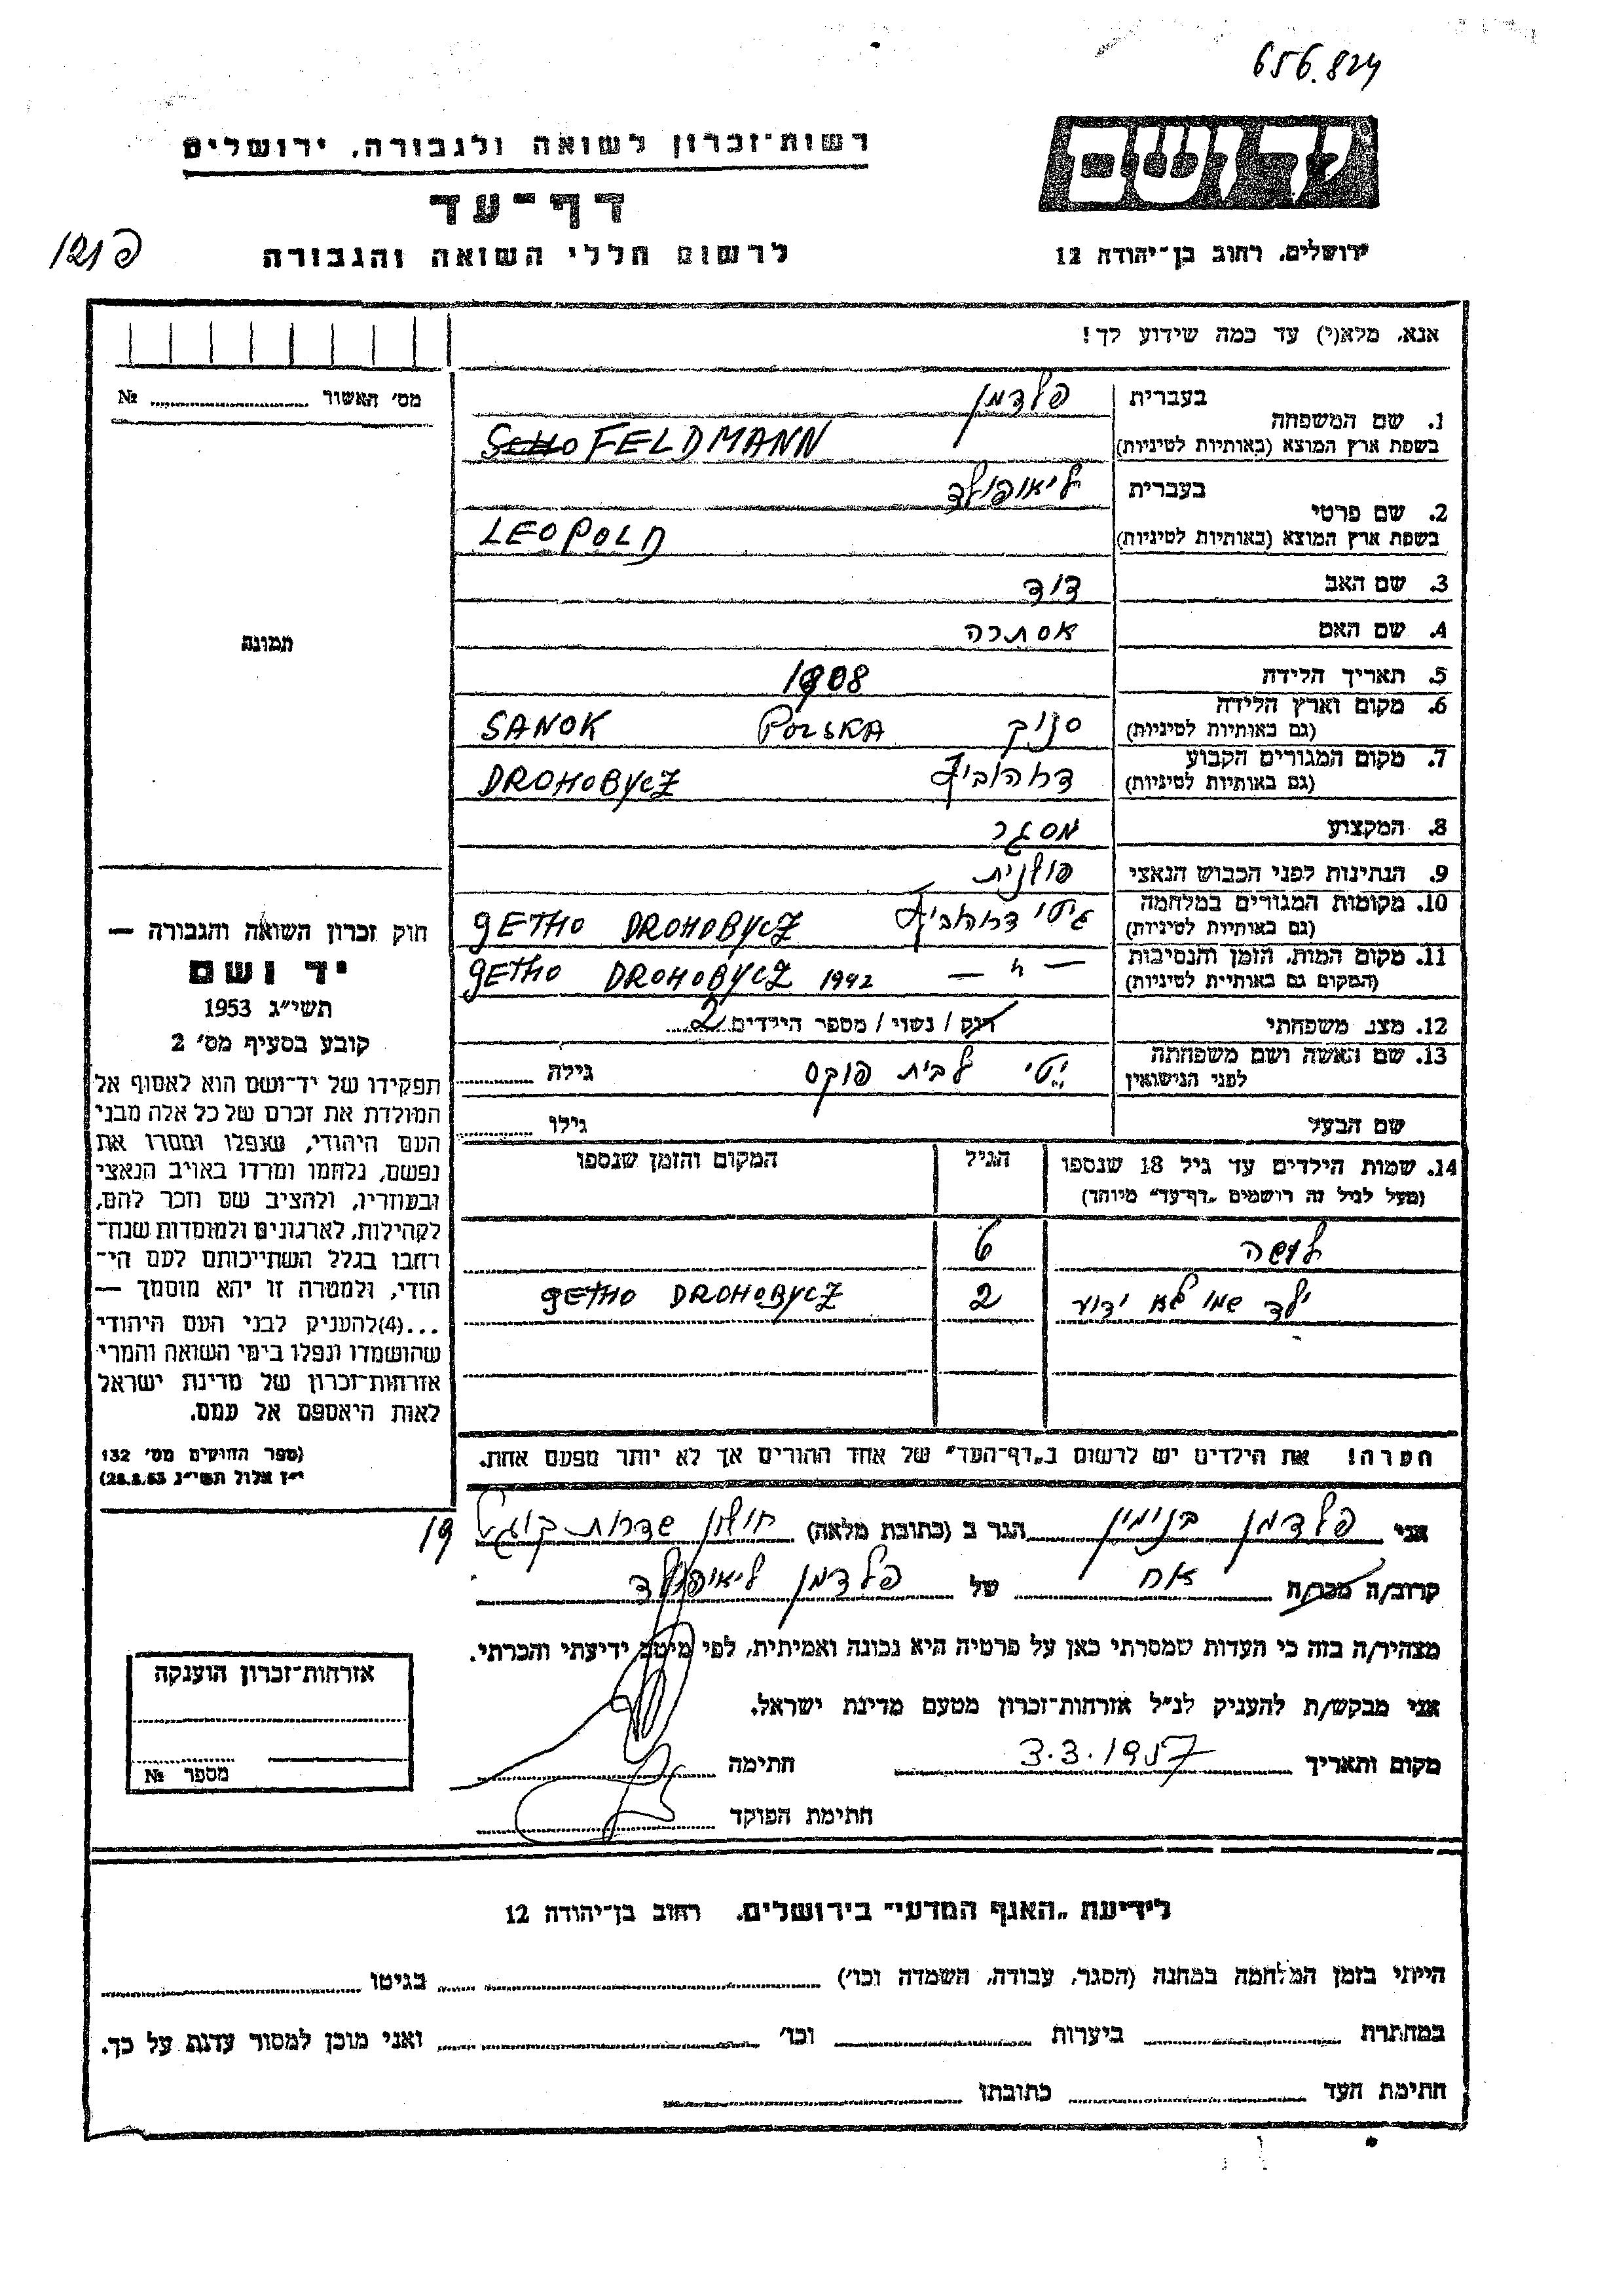 656.824
יד ושם
רשות־זכרון לשואה ולגבורה, ירושלים
דף־עד
לרשום חללי השואה והגבורה
ירושלים, רחוב בן־יהודה 12
פ 121
אנא, מלא(י) עד כמה שידוע לך!
מס׳ האשור № 
1. שם המשפחה
בעברית פלדמן
בשפת ארץ המוצא (באותיות לטיניות) FELDMANN
2. שם פרטי
בעברית ליאופולד
בשפת ארץ המוצא (באותיות לטיניות) LEOPOLD
3. שם האב דוד
4. שם האם אסתרה
תמונה
5. תאריך הלידה 1908
6. מקום וארץ הלידה
(גם באותיות לטיניות) סנוק POLSKA SANOK
7. מקום המגורים הקבוע
(גם באותיות לטיניות) דרוהוביץ DROHOBYCZ
8. המקצוע מסגר
9. הנתינות לפני הכבוש הנאצי פולנית
10. מקומות המגורים במלחמה
(גם באותיות לטיניות) גיטו דרוהוביץ GETHO DROHOBYCZ
11. מקום המות, הזמן והנסיבות
(המקום גם באותיות לטיניות) — " — GETHO DROHOBYCZ 1942
12. מצב משפחתי רווק / נשוי / מספר הילדים 2
13. שם האשה ושם משפחתה
לפני הנישואין יטי לבית פוקס גילה
שם הבעל גילו
14. שמות הילדים עד גיל 18 שנספו הגיל המקום והזמן שנספו
(מעל לגיל זה רושמים „דף־עד״ מיוחד)
6
ילד שמו לא ידוע 2 GETHO DROHOBYCZ
הערה! את הילדים יש לרשום ב„דף־העד״ של אחד ההורים אך לא יותר מפעם אחת.
חוק זכרון השואה והגבורה —
יד ושם
תשי״ג 1953
קובע בסעיף מס׳ 2
תפקידו של יד־ושם הוא לאסוף אל
המולדת את זכרם של כל אלה מבני
העם היהודי, שנפלו ומסרו את
נפשם, נלחמו ומרדו באויב הנאצי
ובעוזריו, ולהציב שם וזכר להם,
לקהילות, לארגונים ולמוסדות שנח־
רבו בגלל השתייכותם לעם הי־
הודי, ולמטרה זו יהא מוסמך —
...(4) להעניק לבני העם היהודי
שהושמדו ונפלו בימי השואה והמרי
אזרחות־זכרון של מדינת ישראל
לאות היאספם אל עמם.
(ספר החוקים מס׳ 132
י״ז אלול תשי״ג 28.8.53)
אני פלדמן בנימין הגר ב (כתובת מלאה) חולון שדרות קוגל 19
קרוב/ה מכר/ה אח של פלדמן ליאופולד
מצהיר/ה בזה כי העדות שמסרתי כאן על פרטיה היא נכונה ואמיתית, לפי מיטב ידיעתי והכרתי.
אני מבקש/ת להעניק לנ״ל אזרחות־זכרון מטעם מדינת ישראל.
מקום ותאריך 3.3.1957 חתימה
חתימת הפוקד
אזרחות־זכרון הוענקה
מספר №
לידיעת „האגף המדעי״ בירושלים, רחוב בן־יהודה 12
הייתי בזמן המלחמה במחנה (הסגר, עבודה, השמדה וכו׳) בגיטו
במחתרת ביערות וכו׳ ואני מוכן למסור עדות על כך.
חתימת העד כתובתו